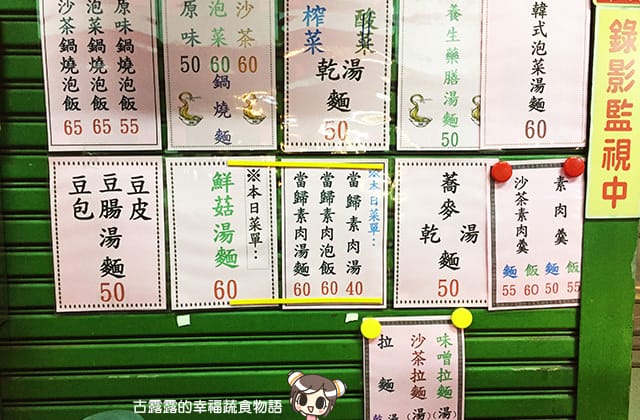 原味鍋燒泡飯 55
泡菜鍋燒泡飯 60
沙茶鍋燒泡飯 65
沙茶 60
泡菜 60
原味 50
鍋燒麵
酸菜
榨菜
乾湯麵
50
養生藥膳湯麵
50
韓式泡菜湯麵
60
錄影監視中
豆皮
豆腸湯麵
豆包
50
※本日菜單：
鮮菇湯麵
60
※本日菜單：
當歸素肉湯 40
當歸素肉泡飯 60
當歸素肉湯麵 60
蕎麥
乾湯
麵
50
素肉羹
飯 55
麵 50
沙茶素肉羹
飯 60
麵 55
味噌拉麵(湯)
沙茶拉麵(湯)
拉麵
乾湯
古露露的幸福蔬食物語